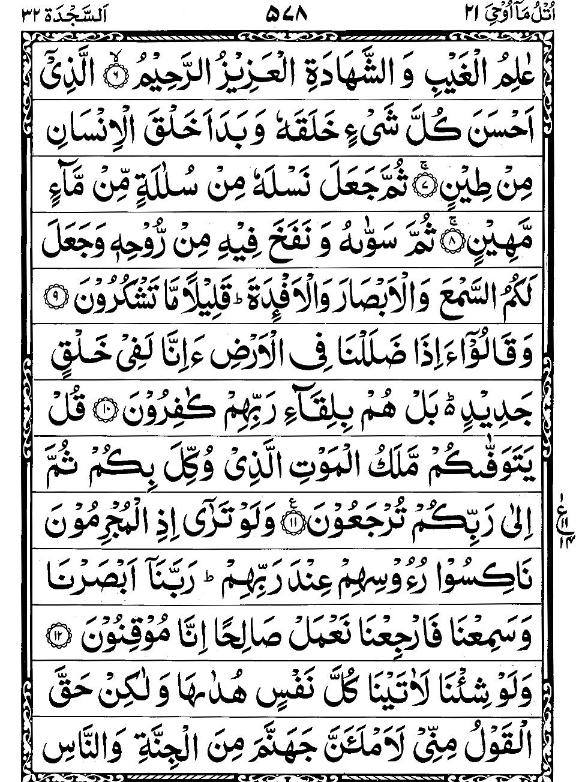 اُتْلُ مَآ اُوْحِیَ ٢١ ٥٧٨ اَلسَّجْدَة ٣٢
عٰلِمُ الْغَیْبِ وَ الشَّهَادَةِ الْعَزِیْزُ الرَّحِیْمُ ۙ﴿٦﴾ الَّذِیْۤ
اَحْسَنَ كُلَّ شَیْءٍ خَلَقَهٗ وَ بَدَاَ خَلْقَ الْاِنْسَانِ
مِنْ طِیْنٍ ۚ﴿٧﴾ ثُمَّ جَعَلَ نَسْلَهٗ مِنْ سُلٰلَةٍ مِّنْ مَّآءٍ
مَّهِیْنٍ ۚ﴿٨﴾ ثُمَّ سَوّٰىهُ وَ نَفَخَ فِیْهِ مِنْ رُّوْحِهٖ وَجَعَلَ
لَكُمُ السَّمْعَ وَالْاَبْصَارَ وَالْاَفْـِٕدَةَ ؕ قَلِیْلًا مَّا تَشْكُرُوْنَ ﴿٩﴾
وَ قَالُوْۤا ءَاِذَا ضَلَلْنَا فِی الْاَرْضِ ءَاِنَّا لَفِیْ خَلْقٍ
جَدِیْدٍ ؕ۬ بَلْ هُمْ بِلِقَآئِ رَبِّهِمْ كٰفِرُوْنَ ﴿١٠﴾ قُلْ
یَتَوَفّٰىكُمْ مَّلَكُ الْمَوْتِ الَّذِیْ وُكِّلَ بِكُمْ ثُمَّ
اِلٰی رَبِّكُمْ تُرْجَعُوْنَ ﴿١١﴾ؑ وَلَوْ تَرٰۤی اِذِ الْمُجْرِمُوْنَ
ع ١١ ١٤
نَاكِسُوْا رُءُوْسِهِمْ عِنْدَ رَبِّهِمْ ؕ رَبَّنَاۤ اَبْصَرْنَا
وَسَمِعْنَا فَارْجِعْنَا نَعْمَلْ صَالِحًا اِنَّا مُوْقِنُوْنَ ﴿١٢﴾
وَلَوْ شِئْنَا لَاٰتَیْنَا كُلَّ نَفْسٍ هُدٰىهَا وَلٰكِنْ حَقَّ
الْقَوْلُ مِنِّیْ لَاَمْلَـَٔنَّ جَهَنَّمَ مِنَ الْجِنَّةِ وَالنَّاسِ